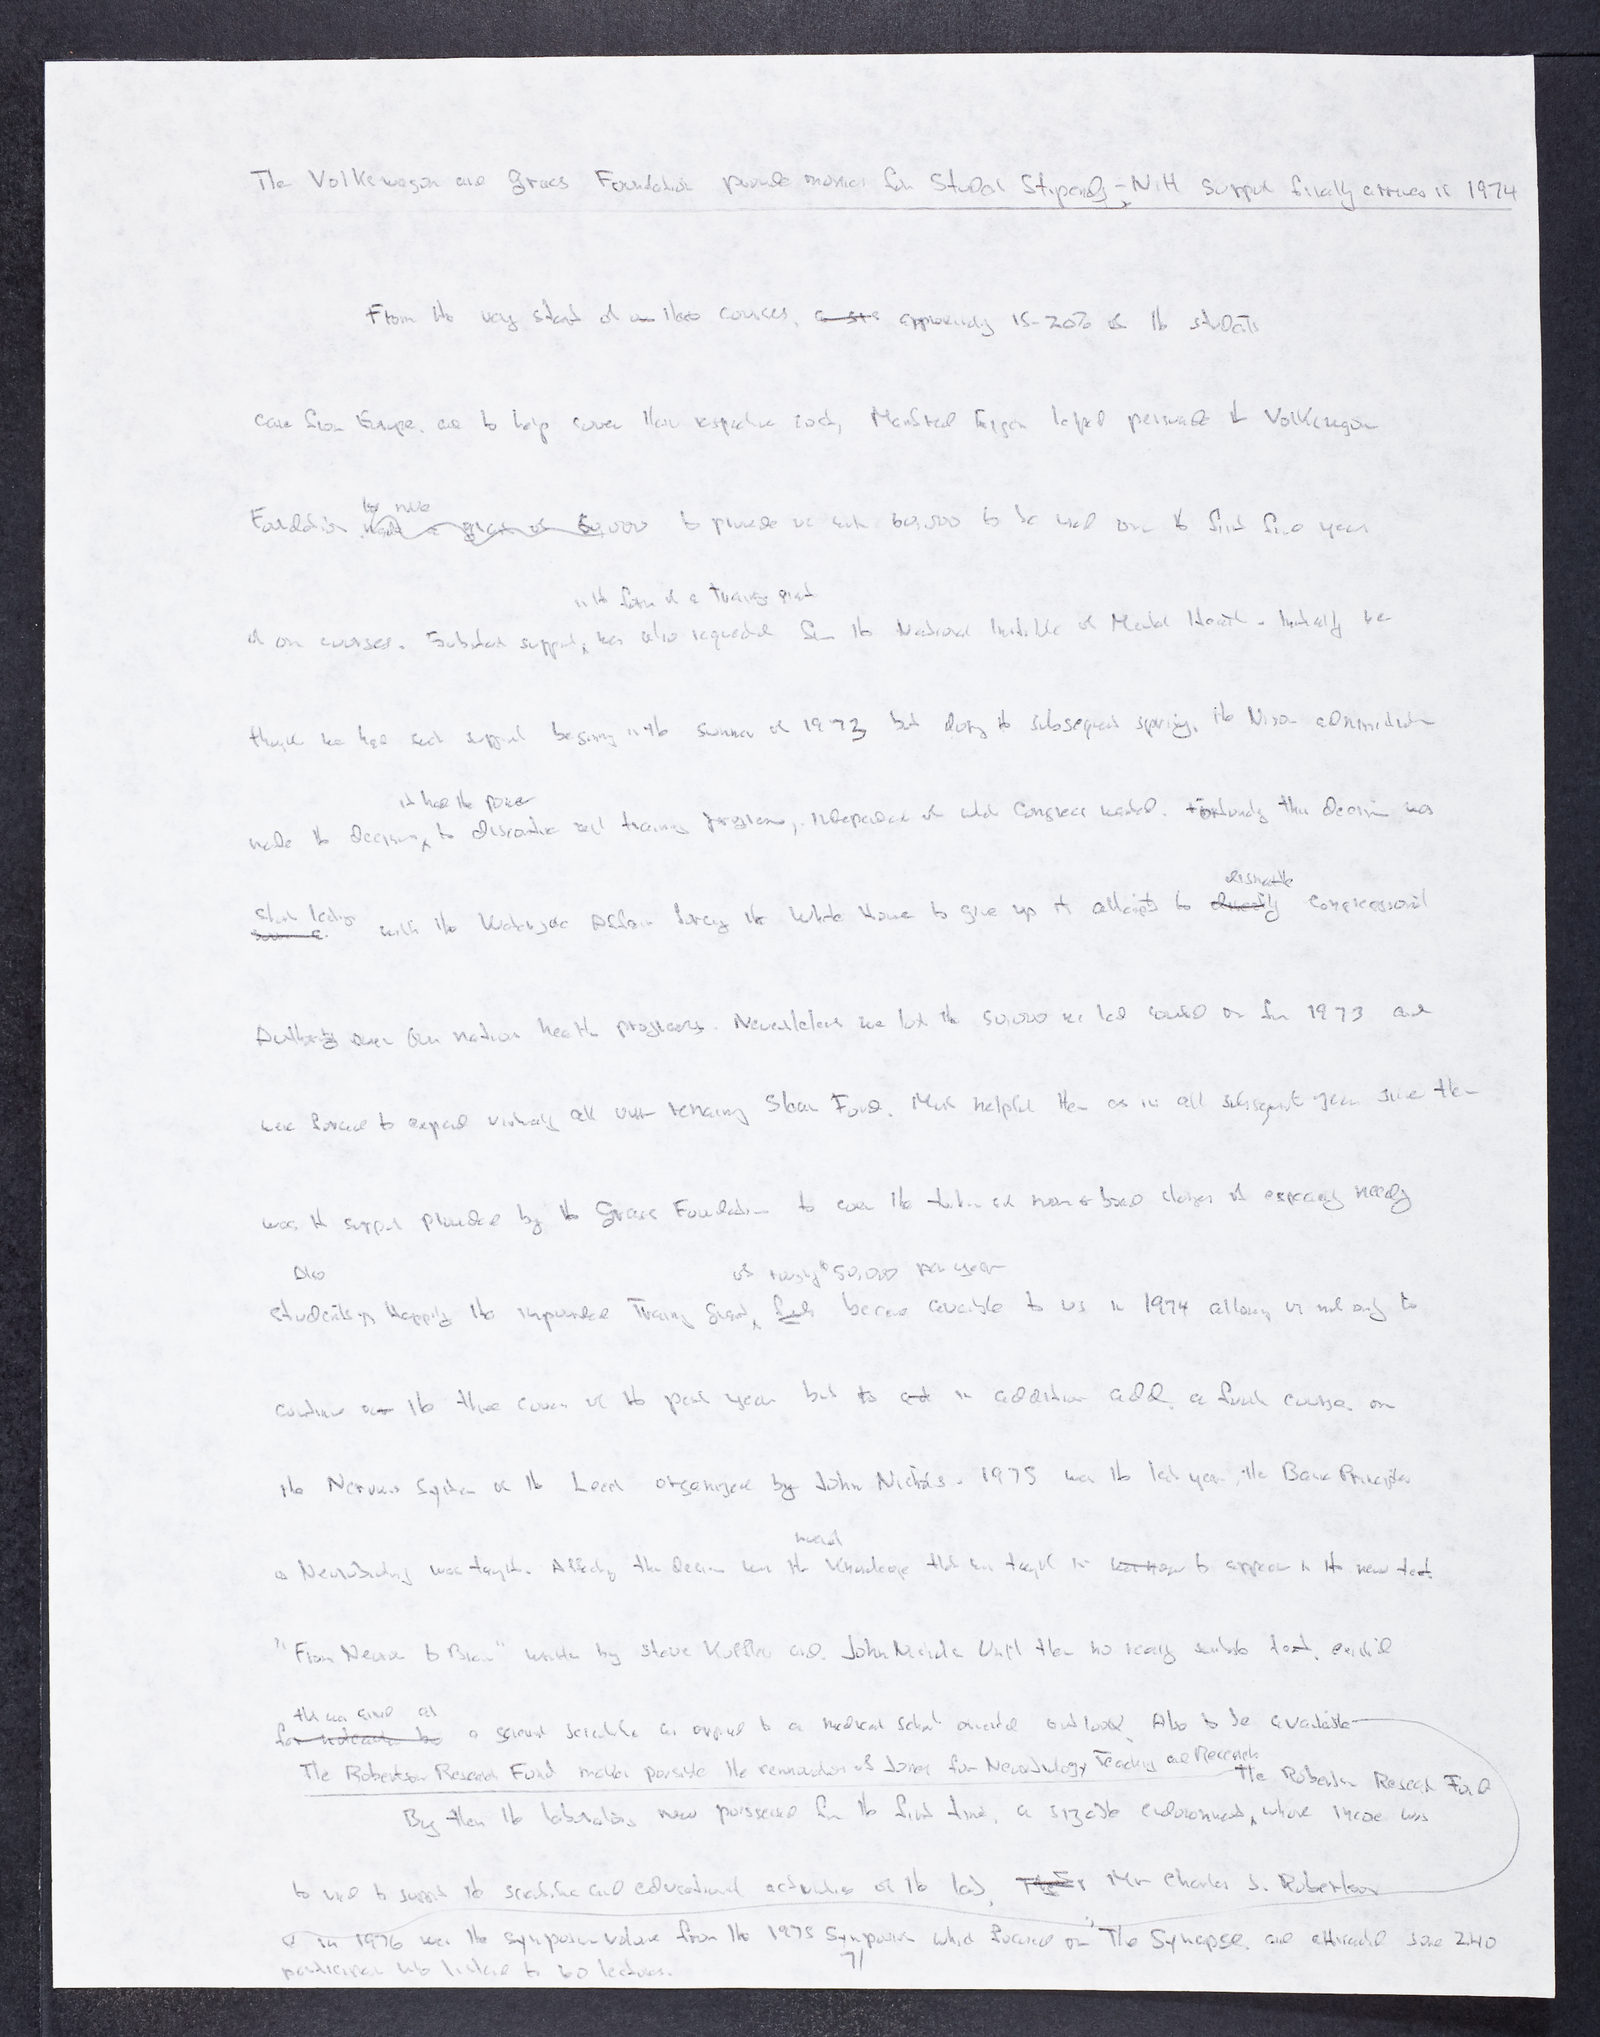 The Volkswagon and Grass Foundation provide monies for Student Stipends - NIH support finally arrives in 1974
From the very start of these courses, approximately 15-20% of the students
came from Europe, and to help cover their respective costs, Manfred Eigen helped persuade the Volkswagon
Foundation to provide us with 60,000 to be used over the first five years
in the form of a training grant
of our courses. Substantial support, was also requested from the National Institute of Mental Health. Initially we
thought we had such support beginning in the summer of 1973 but during the subsequent spring, the Nixon administration
it had the power
made the decision to discontinue such training programs, independent of what Congress wanted. Fortunately this decision was
dismantle
with the Watergate Affair forcing the White House to give up its attempts to directly Congressional
Authority over our nation health programs. Nevertheless we lost the 50,000 we had counted on for 1973 and
were forced to expend virtually all our remaining Sloan Fund. Most helpful then as in all subsequent years since then
was the support provided by the Grass Foundation to cover the tuition and room & board charges of especially needy
Also of roughly $50,000 per year
students. Happily the impounded Training Grant, funds became available to us in 1974 allowing us not only to
continue the three courses of the past year but to in addition add a fourth course, on
the Nervous System of the Leech organized by John Nicholls. 1975 was the last year the Basic Principles
of Neurobiology was taught. Affecting this decision was the knowledge that was taught in to appear in the new text
"From Neuron to Brain" written by Steve Kuffler and John Nicholls. Until then no really suitable text existed
a scientific as opposed to a medical school oriented outlook. Also to be available
The Robertson Research Fund makes possible the renovation of Jones for Neurobiology Teaching and Research
The Robertson Research Fund
By then the laboratory now possessed for the first time, a sizable endowment, whose income was
to used to support the scientific and educational activities of the lab. Mr Charles S. Robertson
in 1976 was the symposium volume from the 1975 Symposium which focused on The Synapse, and attracted some 240
participants who listened to 60 lectures.
71